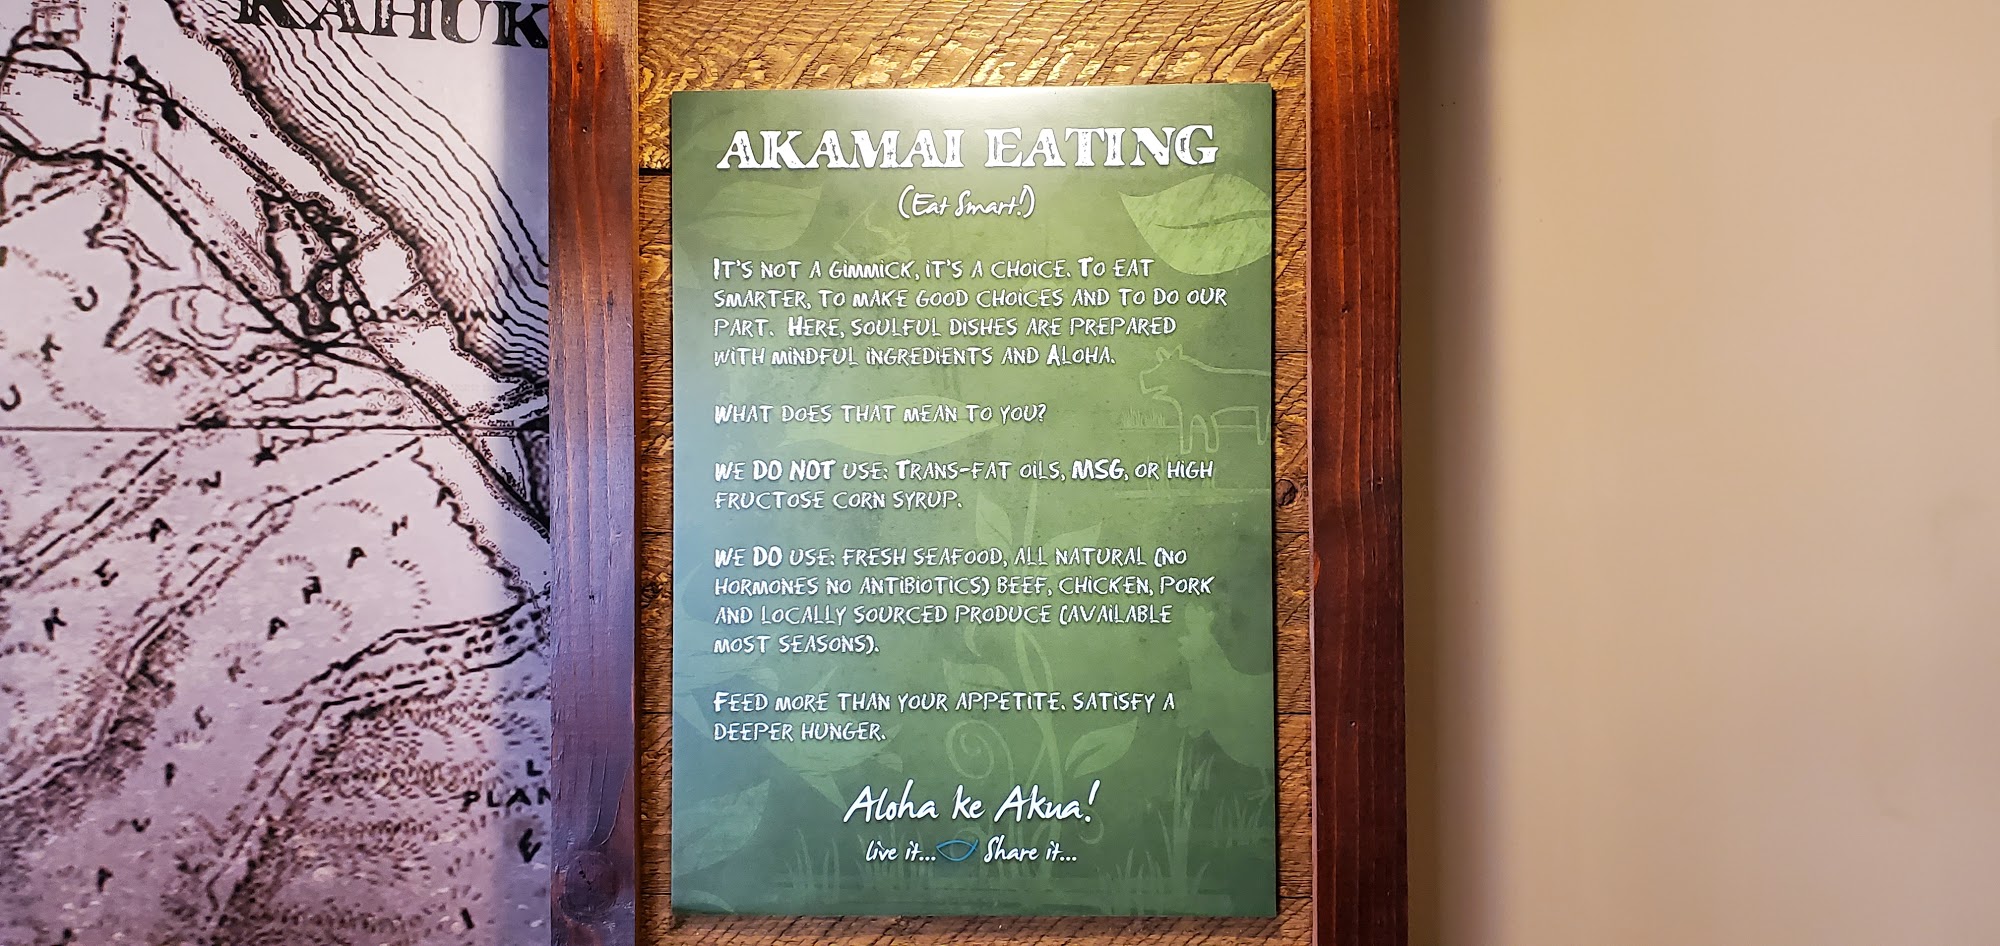 KAHUK
AKAMAI EATING
(Eat Smart!)
IT'S NOT A GIMMICK, IT'S A CHOICE. TO EAT
SMARTER, TO MAKE GOOD CHOICES AND TO DO OUR
PART. HERE, SOULFUL DISHES ARE PREPARED
WITH MINDFUL INGREDIENTS AND ALOHA.
WHAT DOES THAT MEAN TO YOU?
WE DO NOT USE: TRANS-FAT OILS, MSG, OR HIGH
FRUCTOSE CORN SYRUP.
WE DO USE: FRESH SEAFOOD, ALL NATURAL (NO
HORMONES NO ANTIBIOTICS) BEEF, CHICKEN, PORK
AND LOCALLY SOURCED PRODUCE (AVAILABLE
MOST SEASONS).
FEED MORE THAN YOUR APPETITE. SATISFY A
DEEPER HUNGER.
Aloha ke Akua!
live it... Share it...
PLAN